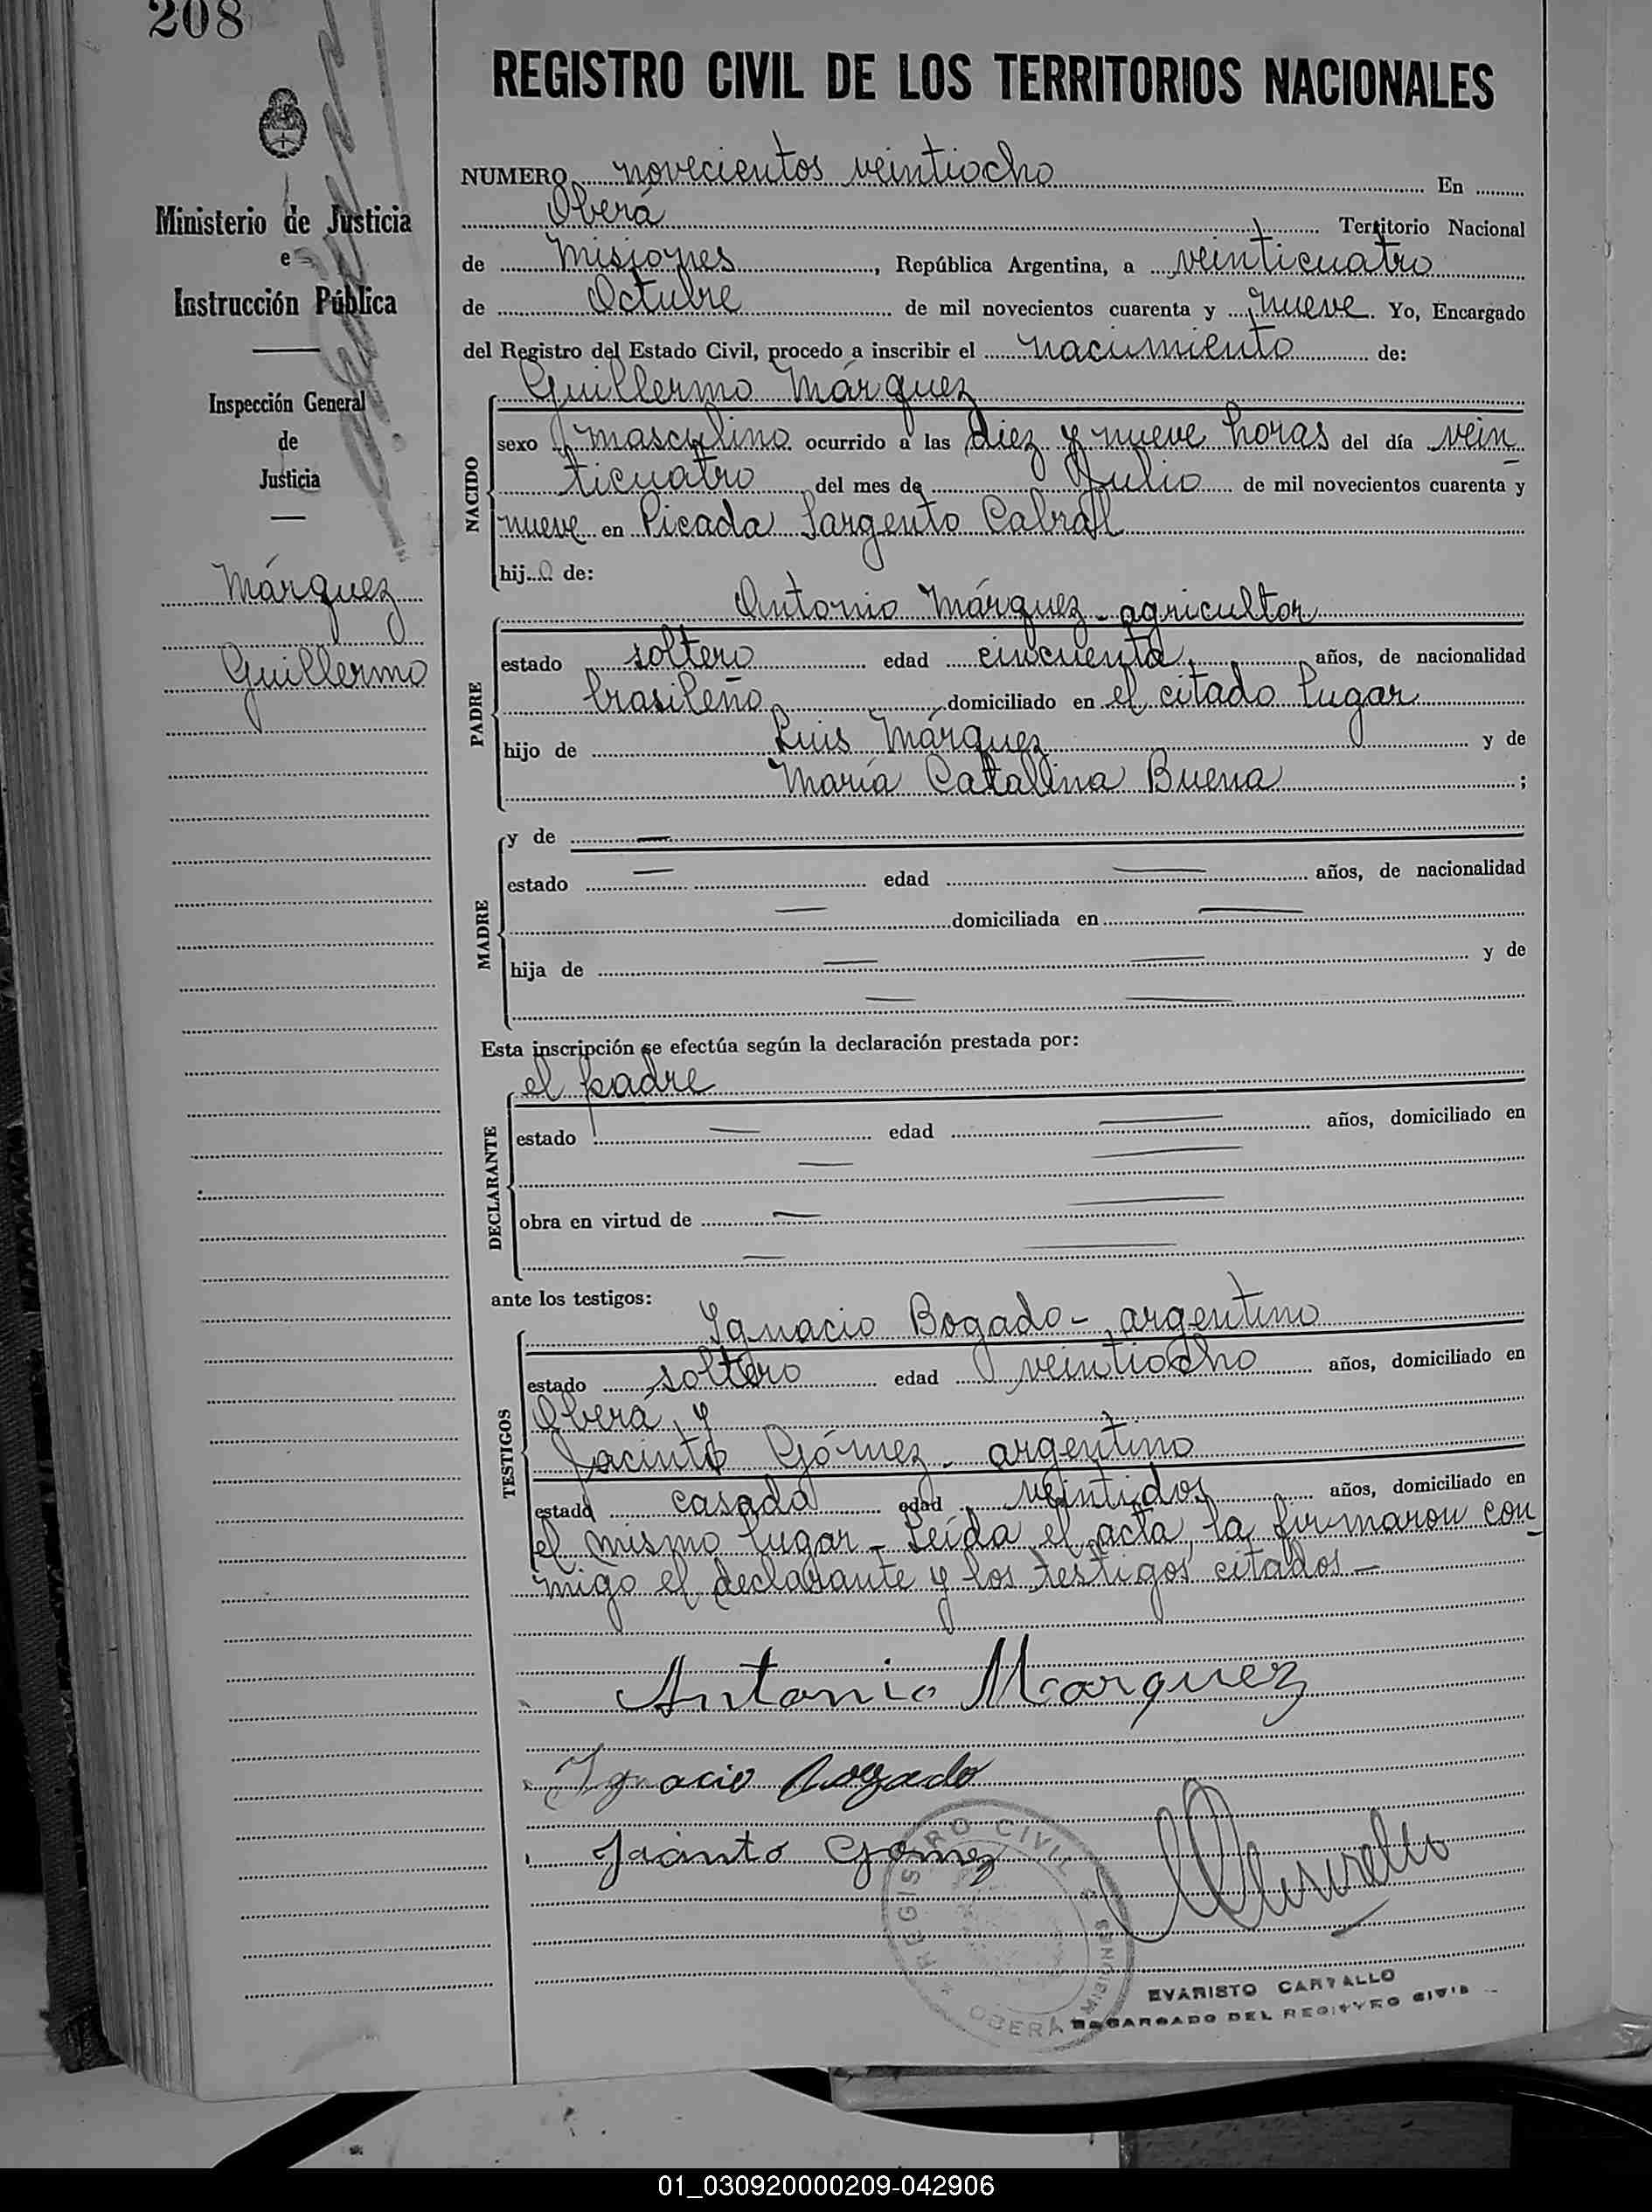 208
REGISTRO CIVIL DE LOS TERRITORIOS NACIONALES
Ministerio de Justicia
e
Instrucción Pública
Inspección General
de
Justicia
Márquez
Guillermo
NUMERO novecientos veintiocho En
Oberá Territorio Nacional
de Misiones, República Argentina, a veinticuatro
de Octubre de mil novecientos cuarenta y nueve. Yo, Encargado
del Registro del Estado Civil, procedo a inscribir el nacimiento de:
Guillermo Márquez
NACIDO
sexo masculino ocurrido a las diez y nueve horas del día vein
ticuatro del mes de Julio de mil novecientos cuarenta y
nueve en Picada Sargento Cabral
hijo de:
Antonio Márquez - agricultor
PADRE
estado soltero edad cincuenta años, de nacionalidad
brasileño domiciliado en el citado lugar
hijo de Luis Márquez y de
María Catalina Buena ;
MADRE
y de —
estado — edad — años, de nacionalidad
— domiciliada en —
hija de — — y de
— —
Esta inscripción se efectúa según la declaración prestada por:
el padre
DECLARANTE
estado — edad — años, domiciliado en
— —
obra en virtud de — —
— —
ante los testigos:
Ignacio Bogado - argentino
TESTIGOS
estado soltero edad veintiocho años, domiciliado en
Oberá y
Jacinto Gómez - argentino
estado casado edad veintidos años, domiciliado en
el mismo lugar - Leída el acta, la firmaron con
migo el declarante y los testigos citados -
Antonio Marquez
Ignacio Bogado
Jacinto Gomez
REGISTRO CIVIL
OBERÁ MISIONES
EVARISTO CARVALLO
ENCARGADO DEL REGISTRO CIVIL
01_030920000209-042906